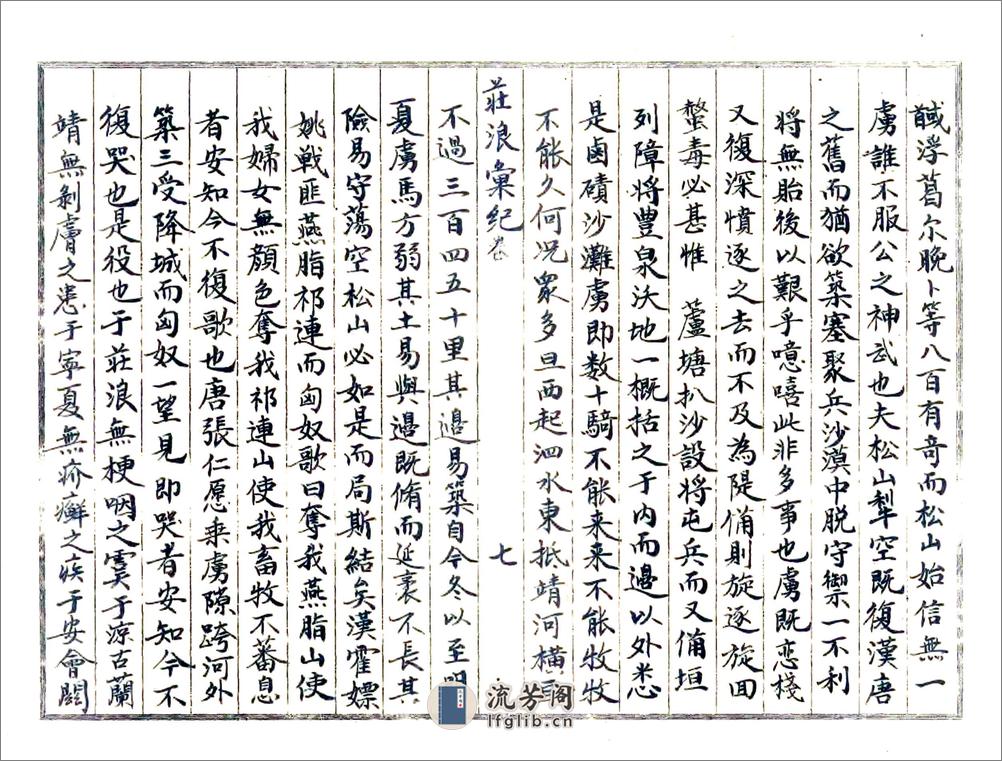 馘浮葛尔晚卜等八百有奇而松山始信無一
虜誰不服公之神武也夫松山犁空既復漢唐
之舊而猶欲築塞聚兵沙漠中脱守禦一不利
將無貽後以艱乎噫嘻此非多事也虜既恋棧
又復深憤逐之去而不及為隄偹則旋逐旋回
螫毒必甚惟 蘆塘扒沙設將屯兵而又偹垣
列障將豊泉沃地一概括之于内而邊以外悉
是鹵磧沙灘虜即数十騎不能来来不能牧牧
不能久何况衆多旦西起泗水東抵靖河横
莊浪彙紀卷 七
不過三百四五十里其邊易築自今冬以至明
夏虜馬方弱其土易與邊既脩而延袤不長其
險易守蕩空松山必如是而局斯結矣漢霍嫖
姚戰匪燕脂祁連而匈奴歌曰奪我燕脂山使
我婦女無顔色奪我祁連山使我畜牧不蕃息
者安知今不復歌也唐張仁愿乘虜隙跨河外
築三受降城而匈奴一望見即哭者安知今不
復哭也是役也于莊浪無梗咽之虞于凉古蘭
靖無剝膚之患于寧夏無疥癬之疾于安會關
流芳阁
lfglib.cn